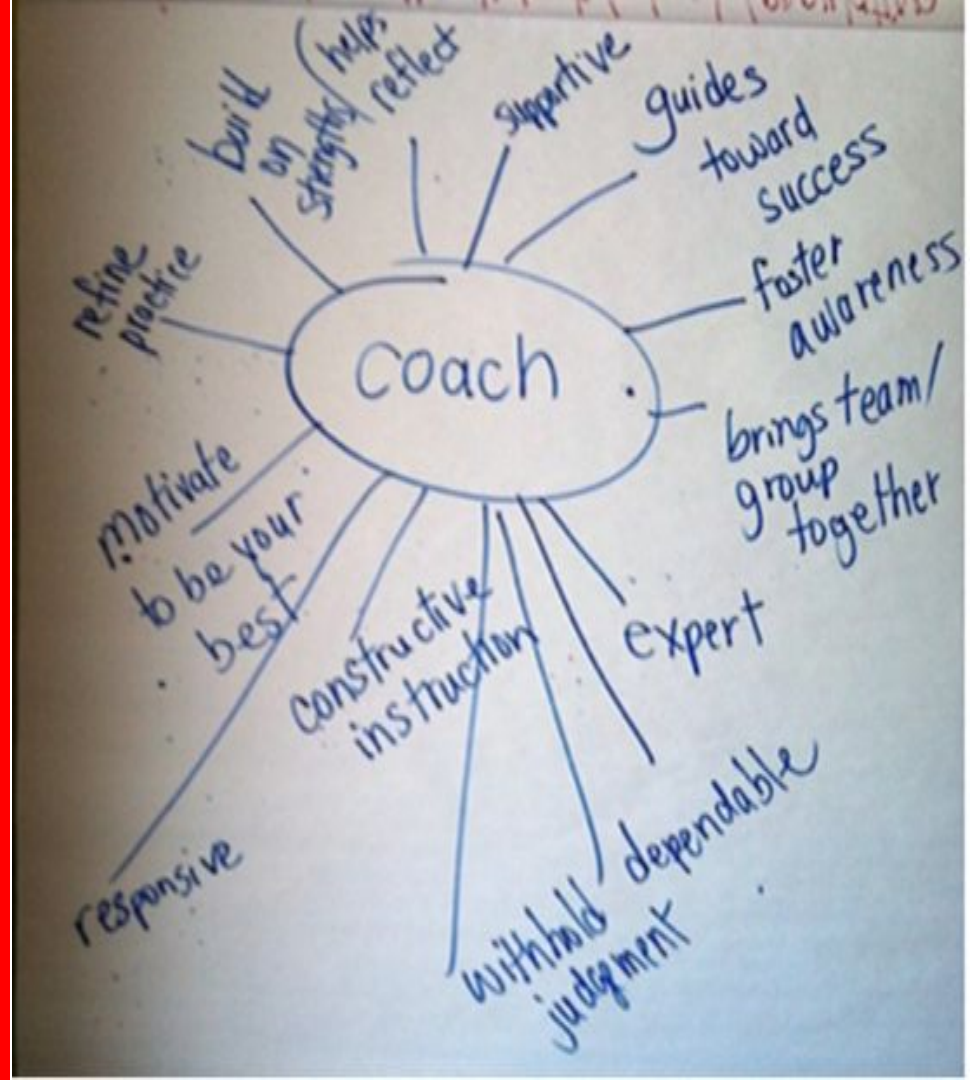 coach
build
on
strengths/
(helps
reflect
supportive
guides
toward
success
foster
awareness
brings team/
group
together
expert
dependable
withhold
judgment
constructive
instruction
responsive
motivate
to be your
best
refine
practice